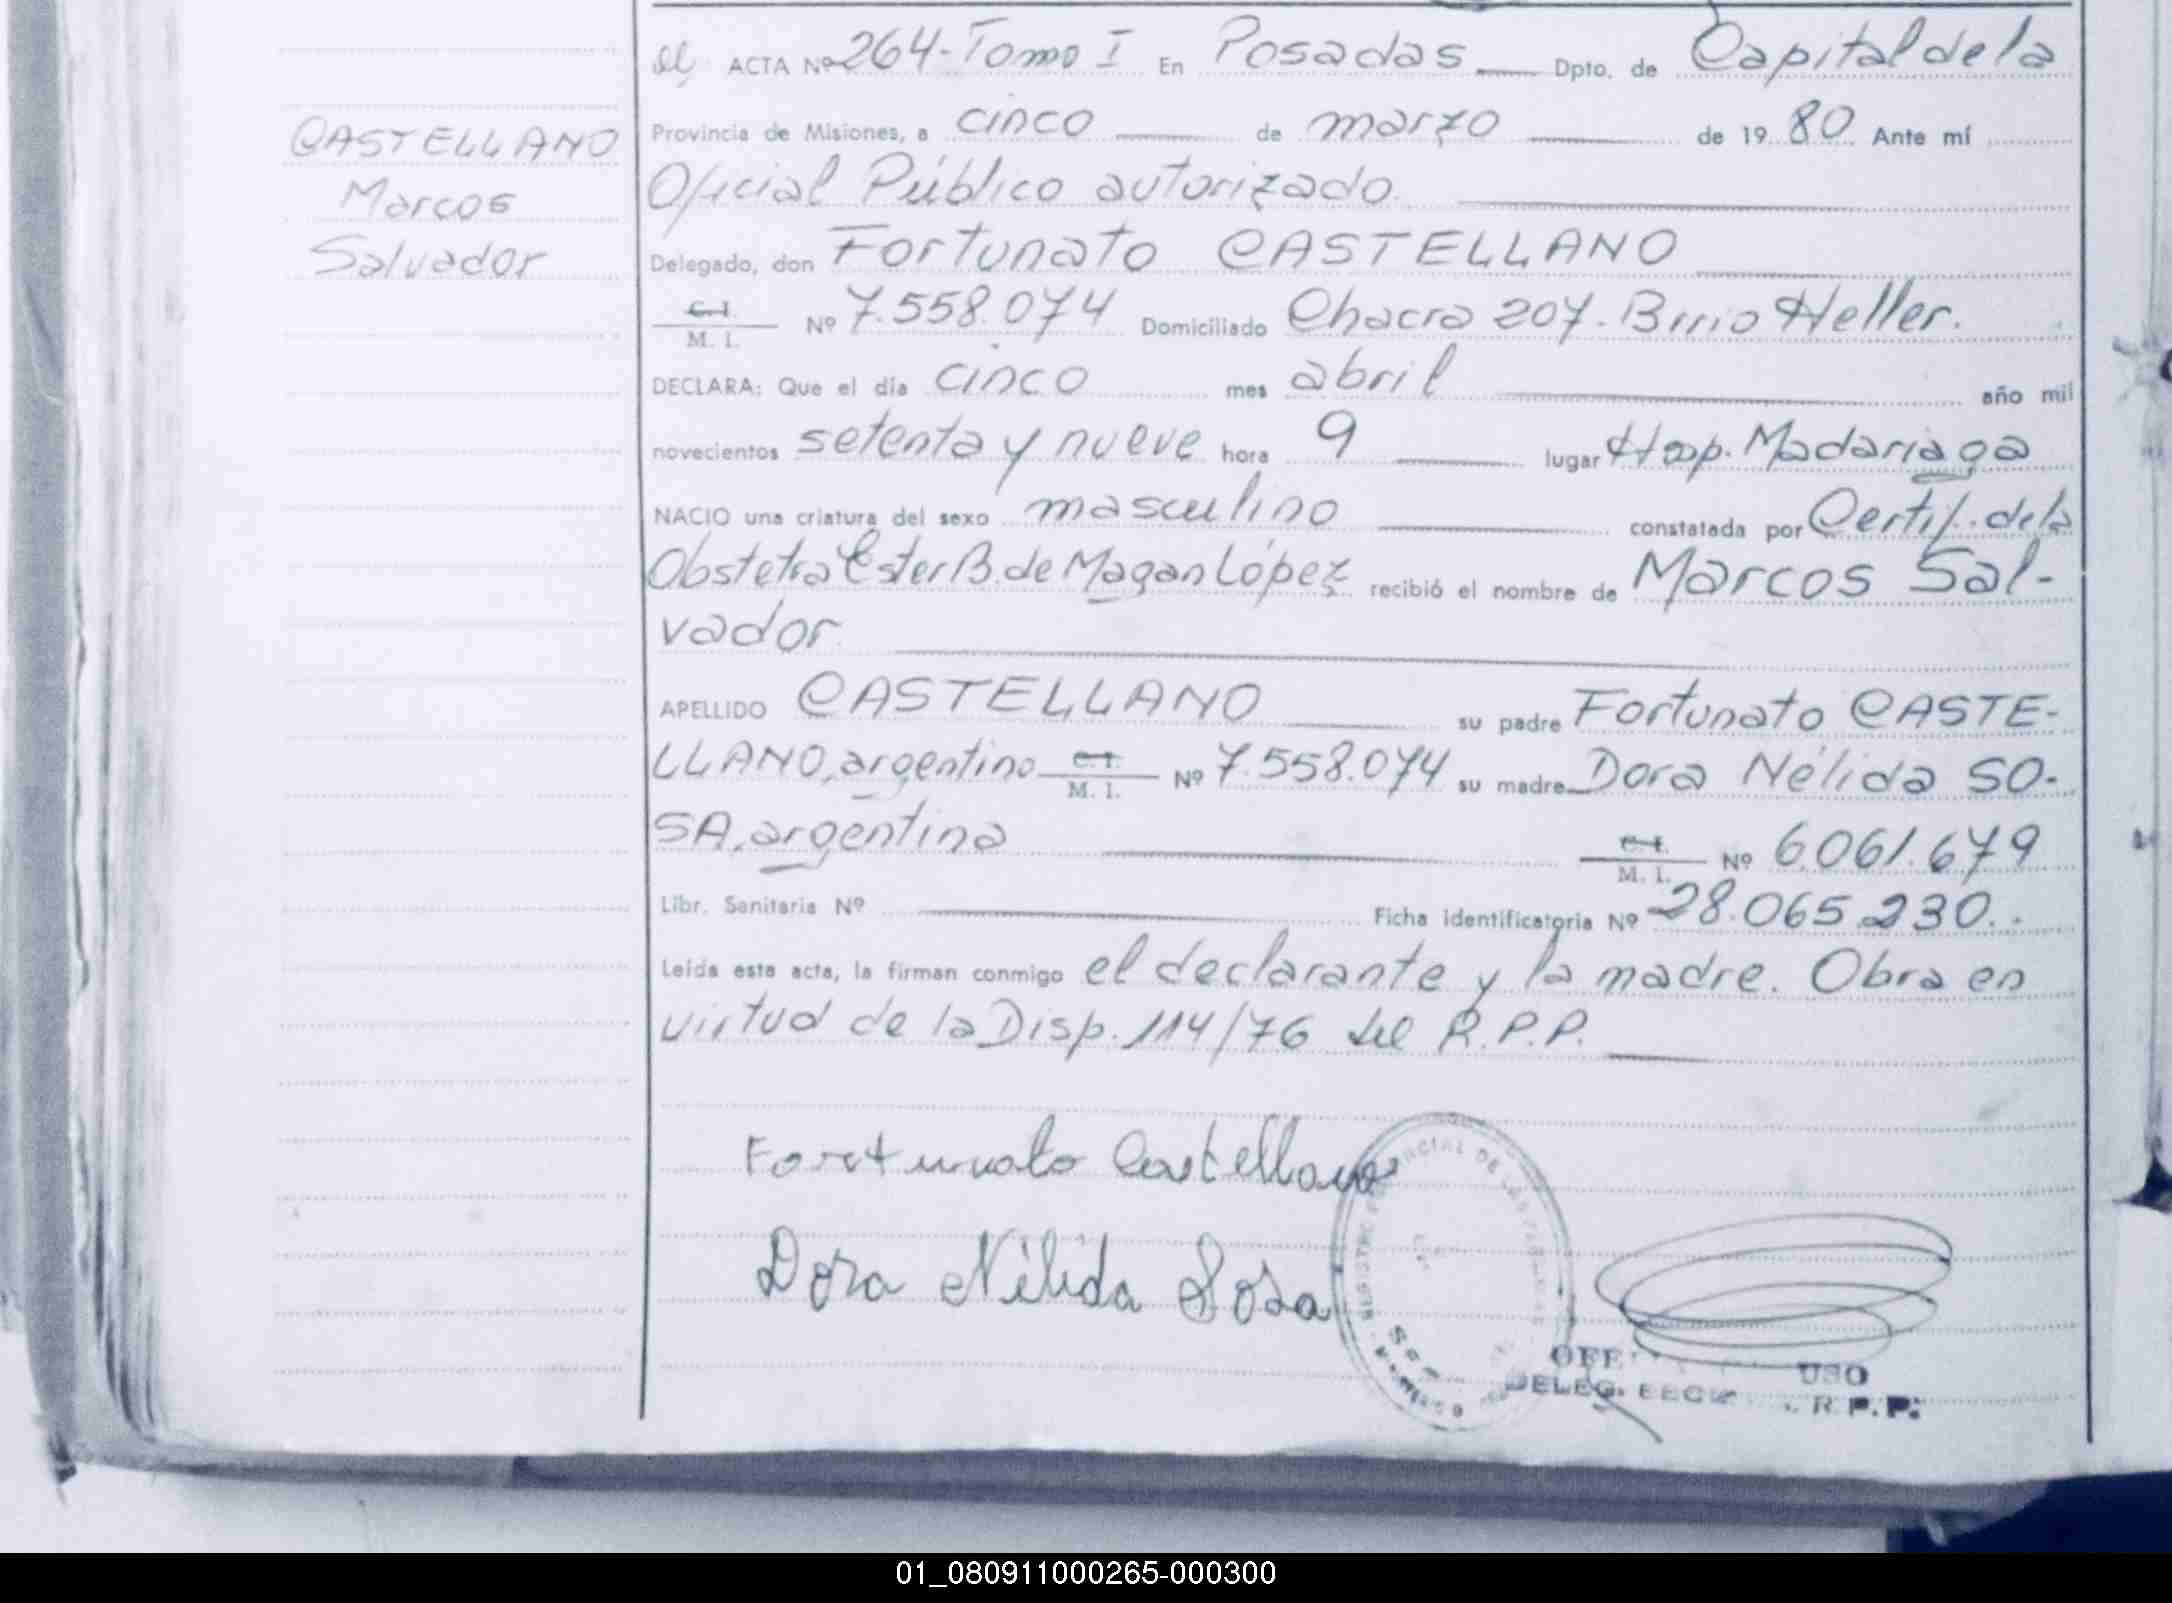 CASTELLANO
Marcos
Salvador
ACTA Nº 264-Tomo I En Posadas Dpto. de Capital de la
Provincia de Misiones, a cinco de marzo de 1980 Ante mí
Oficial Público autorizado.
Delegado, don Fortunato CASTELLANO
C. I. M. I. Nº 7.558.074 Domiciliado Chacra 207. Brrio Heller.
DECLARA: Que el día cinco mes abril año mil
novecientos setenta y nueve hora 9 lugar Hosp. Madariaga
NACIO una criatura del sexo masculino constatada por Certif. de la
Obstetra Ester B. de Magan López recibió el nombre de Marcos Sal-
vador.
APELLIDO CASTELLANO su padre Fortunato CASTE-
LLANO, argentino C. I. M. I. Nº 7.558.074 su madre Dora Nélida SO-
SA, argentina C. I. M. I. Nº 6.061.679
Libr. Sanitaria Nº Ficha identificatoria Nº 28.065.230.
Leída esta acta, la firman conmigo el declarante y la madre. Obra en
virtud de la Disp. 114/76 del R.P.P.
Fortunato Castellano
Dora Nélida Sosa
DELEG. R.P.P.
01_080911000265-000300